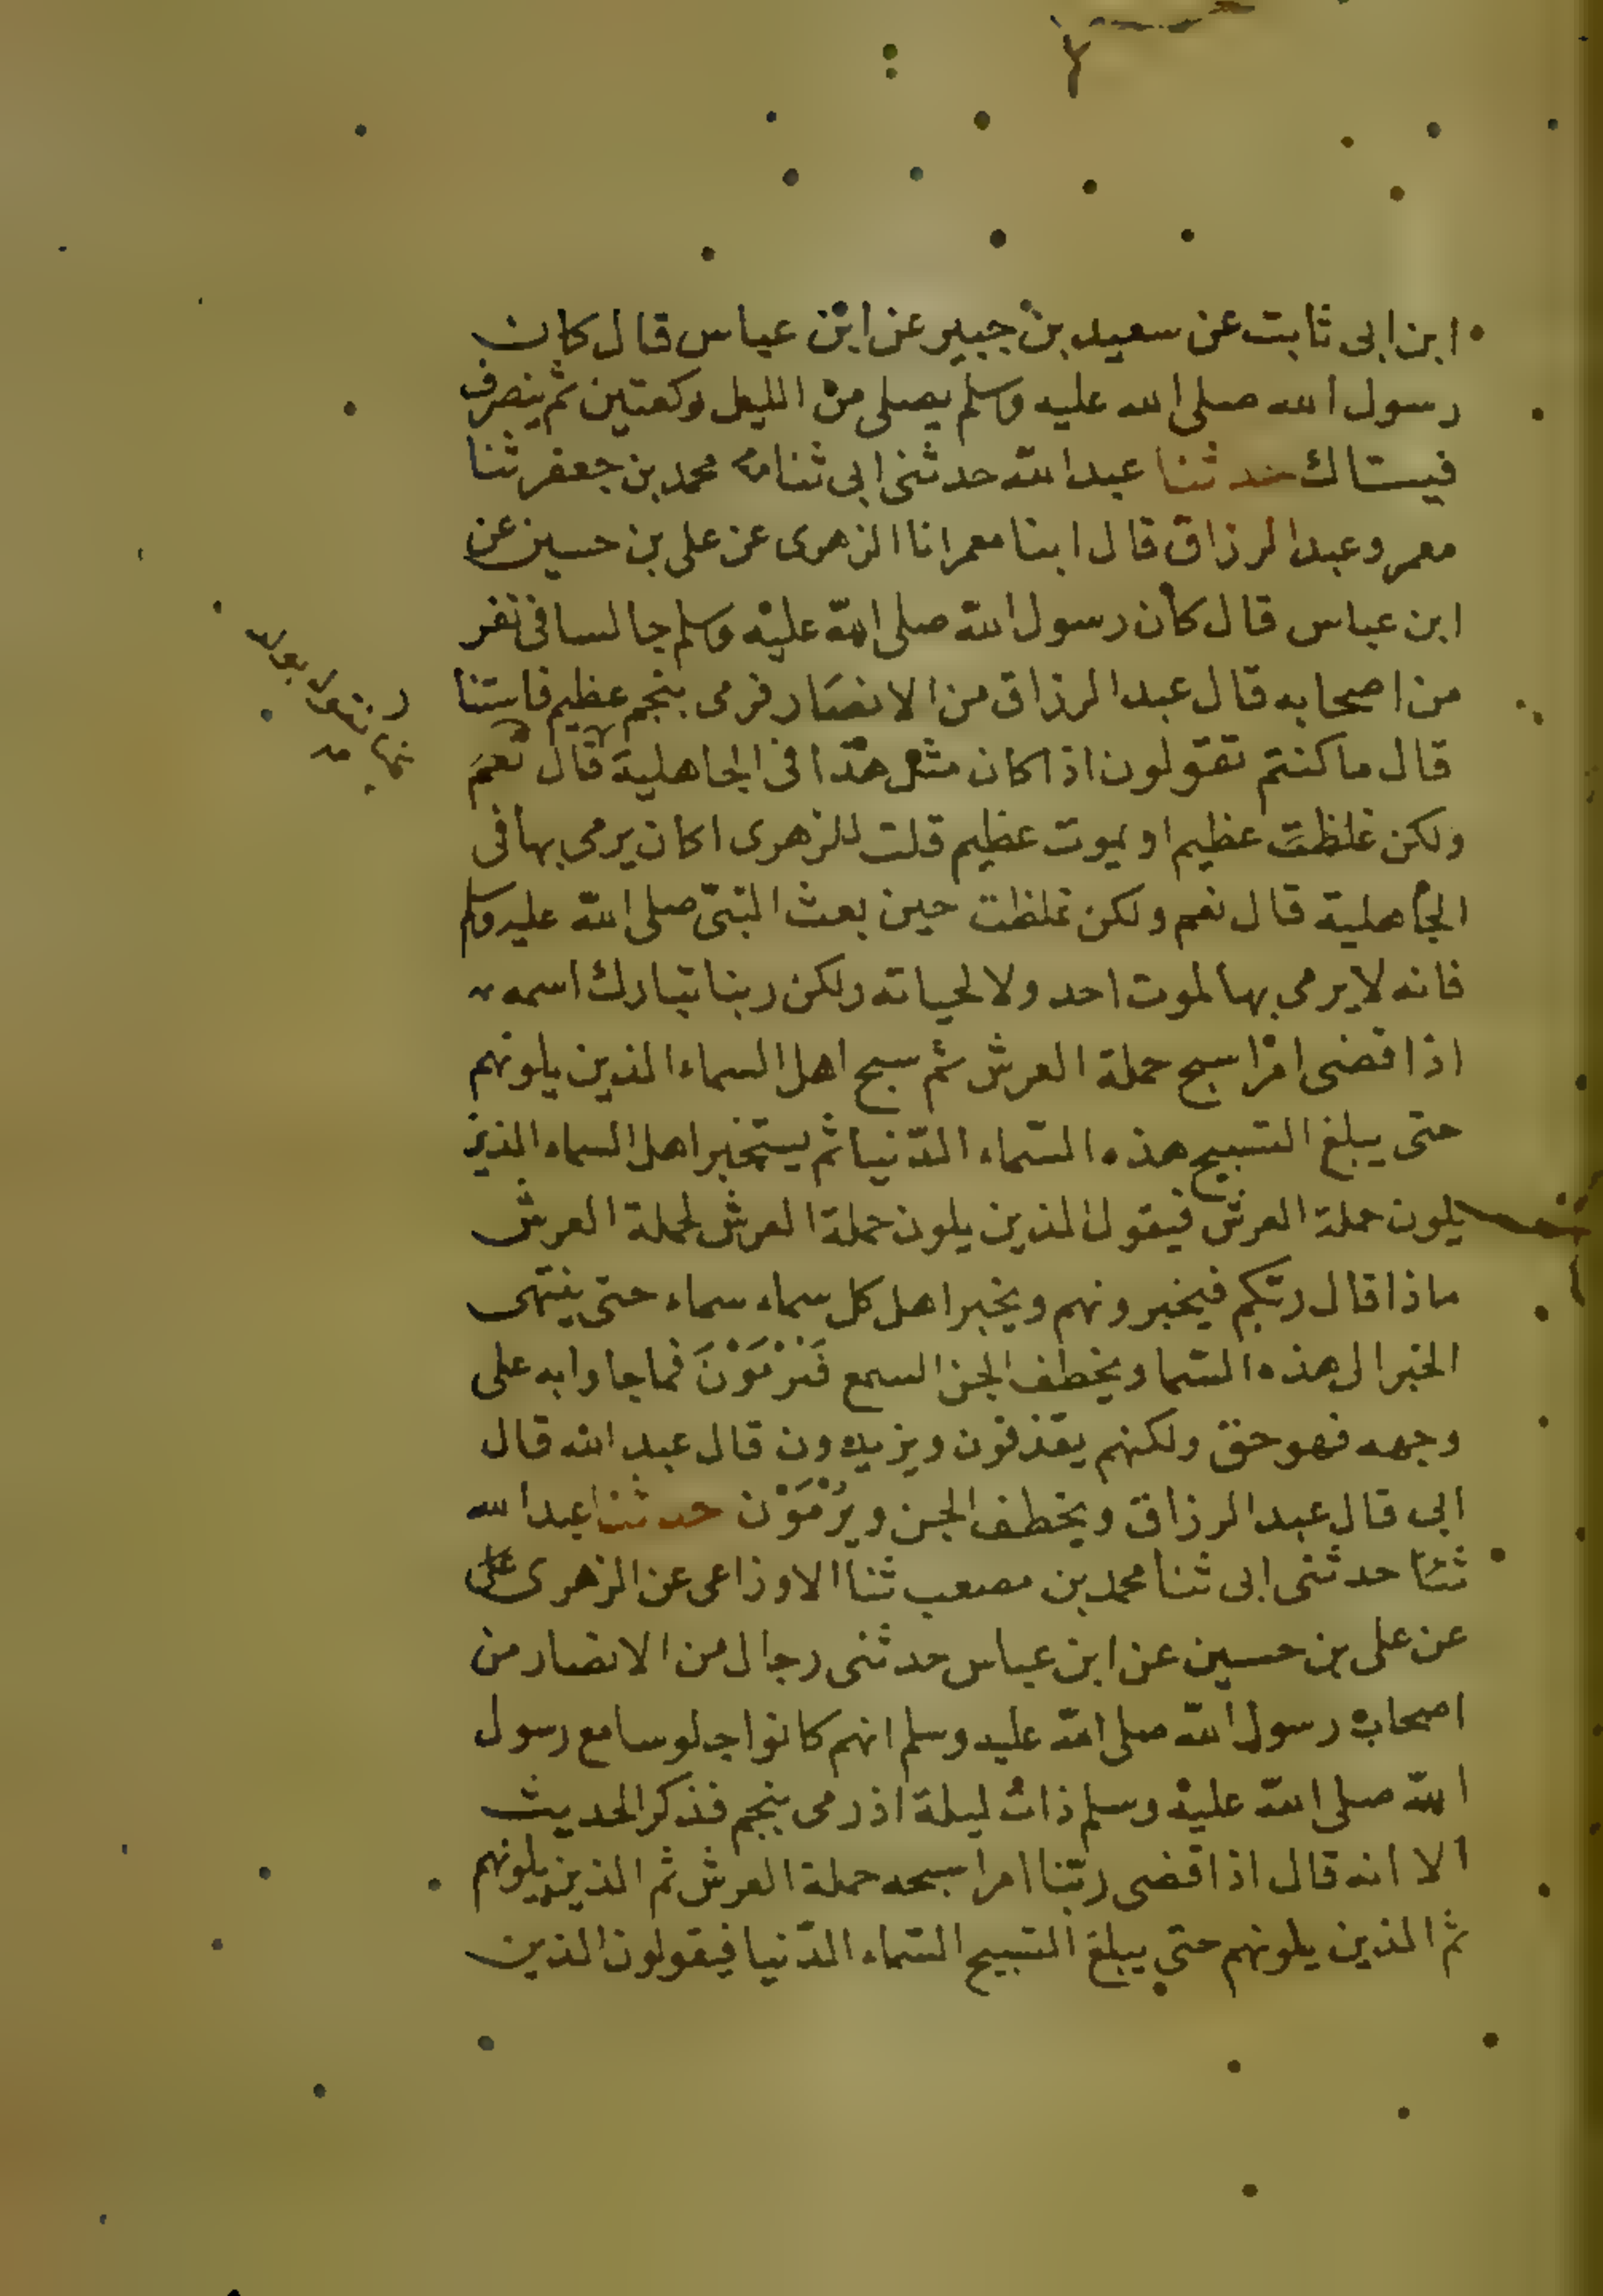 ابن ابى ثابت عن سعيد بن جبير عن ابن عباس قال كان
رسول الله صلى الله عليه وسلم يصلى من الليل ركعتين ثم ينصرف
فيستاك حدثنا عبد الله حدثنى ابى ثنا محمد بن جعفر ثنا
معمر وعبد الرزاق قال ابنا معمر انا الزهرى عن على بن حسين عن
ابن عباس قال كان رسول الله صلى الله عليه وسلم جالسا فى نفر
من اصحابه قال عبد الرزاق من الانصار فرمى بنجم عظيم فاستنا
قال ما كنتم تقولون اذا كان مثل هذا فى الجاهلية قال نعم
ولكن غلظت عظيم او يموت عظيم قلت للزهرى اكان يرمى بها فى
الجاهلية قال نعم ولكن غلظت حين بعث النبى صلى الله عليه وسلم
فانه لا يرمى بها لموت احد ولا لحياته ولكن ربنا تبارك اسمه
اذا قضى امرا سبح حملة العرش ثم سبح اهل السماء الذين يلونهم
حتى يبلغ التسبيح هذه السّماء الدّنيا ثم يستخبر اهل السماء الذين
يلون حملة العرش فيقول الذين يلون حملة العرش لحملة العرش
ماذا قال ربّكم فيخبرونهم ويخبر اهل كل سماء سماء حتى ينتهى
الخبر الى هذه السّما ويخطف الجن السمع فَيُرْمَوْنَ فما جاوا به على
وجهه فهو حق ولكنهم يقذفون ويزيدون قال عبد الله قال
ابى قال عبد الرزاق ويخطف الجن ويُرْمَوْن حدثنا عبد الله
ثنا حدثنى ابى ثنا محمد بن مصعب ثنا الاوزاعى عن الزهرى على
عن على بن حسين عن ابن عباس حدثنى رجال من الانصار من
اصحاب رسول الله صلى الله عليه وسلم انهم كانوا جلوسا مع رسول
الله صلى الله عليه وسلم ذات ليلة اذ رمى بنجم فذكر الحديث
الا انه قال اذا قضى ربّنا امرا سبحه حملة العرش ثم الذين يلونهم
ثم الذين يلونهم حتى يبلغ التسبيح السّماء الدّنيا فيقولون الذين